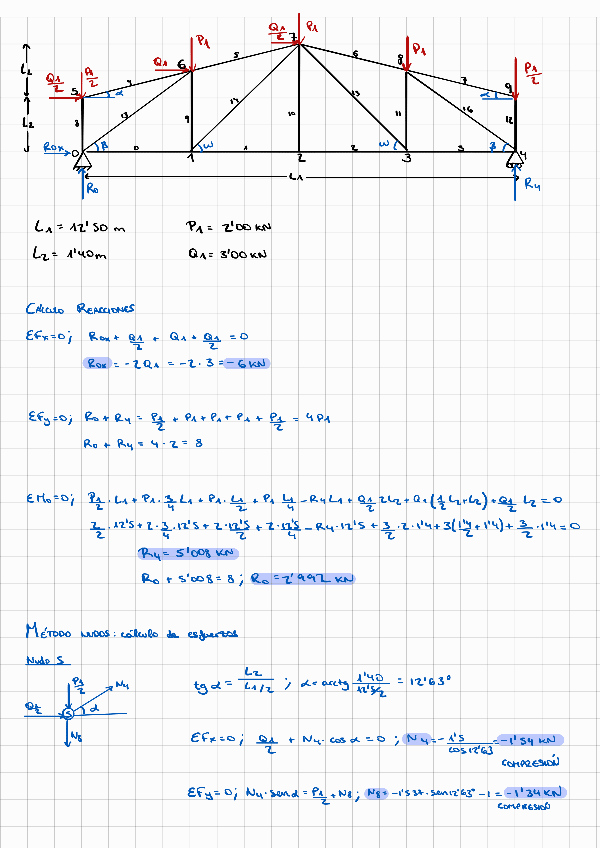 Q1/2 P1 Q1/2 7 P1
P1/2 6 5 6 8 P1
L2 5 4 α 7 α 9 P1/2
L2 8 13 9 17 10 15 11 16 12
Rox 0 β 0 1 ω 1 2 2 ω 3 3 β 4
R0 L1 R4
L1 = 12'50 m P1 = 2'00 KN
L2 = 1'40 m Q1 = 3'00 KN
CÁLCULO REACCIONES
ΣFx=0; Rox + Q1/2 + Q1 + Q1/2 = 0
Rox = -2Q1 = -2·3 = -6 KN
ΣFy=0; R0 + R4 = P1/2 + P1 + P1 + P1 + P1/2 = 4P1
R0 + R4 = 4·2 = 8
ΣM0=0; P1/2·L1 + P1·3/4 L1 + P1·L1/2 + P1 L1/4 - R4L1 + Q1/2 2L2 + Q1(1/2 L2+L2) + Q1/2 L2 = 0
2/2·12'5 + 2·3/4·12'5 + 2·12'5/2 + 2·12'5/4 - R4·12'5 + 3/2·2·1'4 + 3(1'4/2+1'4) + 3/2·1'4 = 0
R4 = 5'008 KN
R0 + 5'008 = 8; R0 = 2'992 KN
MÉTODO NUDOS: cálculo de esfuerzos
Nudo 5
P1/2 N4 Q1/2 5 α N8
tg α = L2/L1/2 ; α = arctg 1'40/12'5/2 = 12'63°
ΣFx=0; Q1/2 + N4·cos α = 0; N4 = -1'5/cos 12'63 = -1'54 KN
COMPRESIÓN
ΣFy=0; N4·sen α = P1/2 + N8; N8 = -1'537·sen 12'63° - 1 = -1'34 KN
COMPRESIÓN